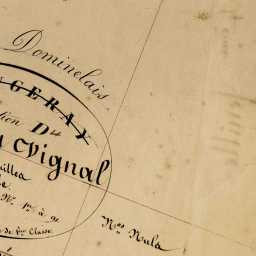 Dominelais
NGERAY
tion D
u Vignal
illea
Nos 1er à 91
r de 1ère Classe.
Mon Nula